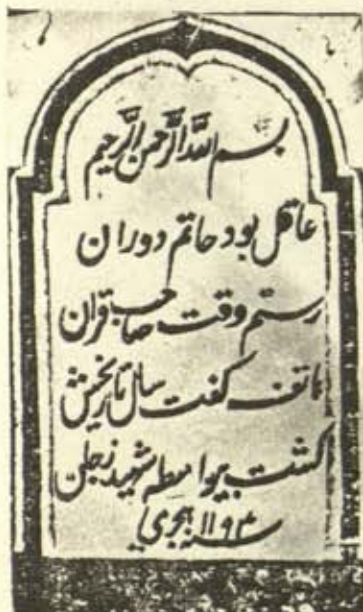 بسم اللہ الرحمن الرحیم
عاقل بود حاتم دوران
رستم وقت صاحب قران
ہاتف گفت سال تاریخش
گشت بیواسطہ شہید زجان
سنہ ۱۱۹۳ ہجری